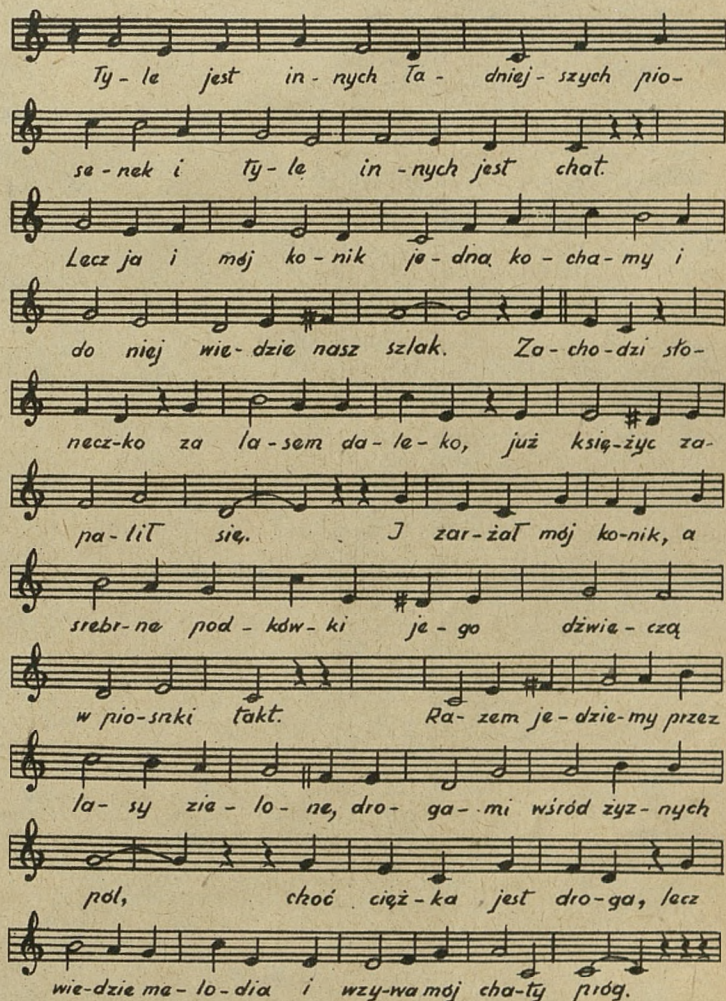 Ty - le jest in - nych ła - dniej - szych pio-
se - nek i ty - le in - nych jest chat.
Lecz ja i mój ko - nik je - dną ko - cha - my i
do niej wie - dzie nasz szlak. Za - cho - dzi sło-
necz - ko za la - sem da - le - ko, już księ - życ za-
pa - lił się. I zar - żał mój ko - nik, a
srebr - ne pod - ków - ki je - go dźwię - czą
w pio - snki takt. Ra - zem je - dzie - my przez
la - sy zie - lo - ne, dro - ga - mi wśród żyz - nych
pól, choć cięż - ka jest dro - ga, lecz
wie - dzie me - lo - dia i wzy - wa mój cha - ty próg.